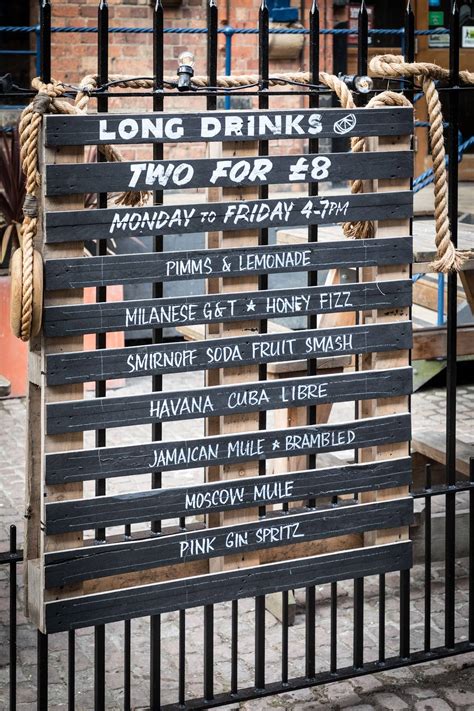 LONG DRINKS
TWO FOR £8
MONDAY TO FRIDAY 4-7PM
PIMMS & LEMONADE
MILANESE G&T ★ HONEY FIZZ
SMIRNOFF SODA FRUIT SMASH
HAVANA CUBA LIBRE
JAMAICAN MULE ★ BRAMBLED
MOSCOW MULE
PINK GIN SPRITZ